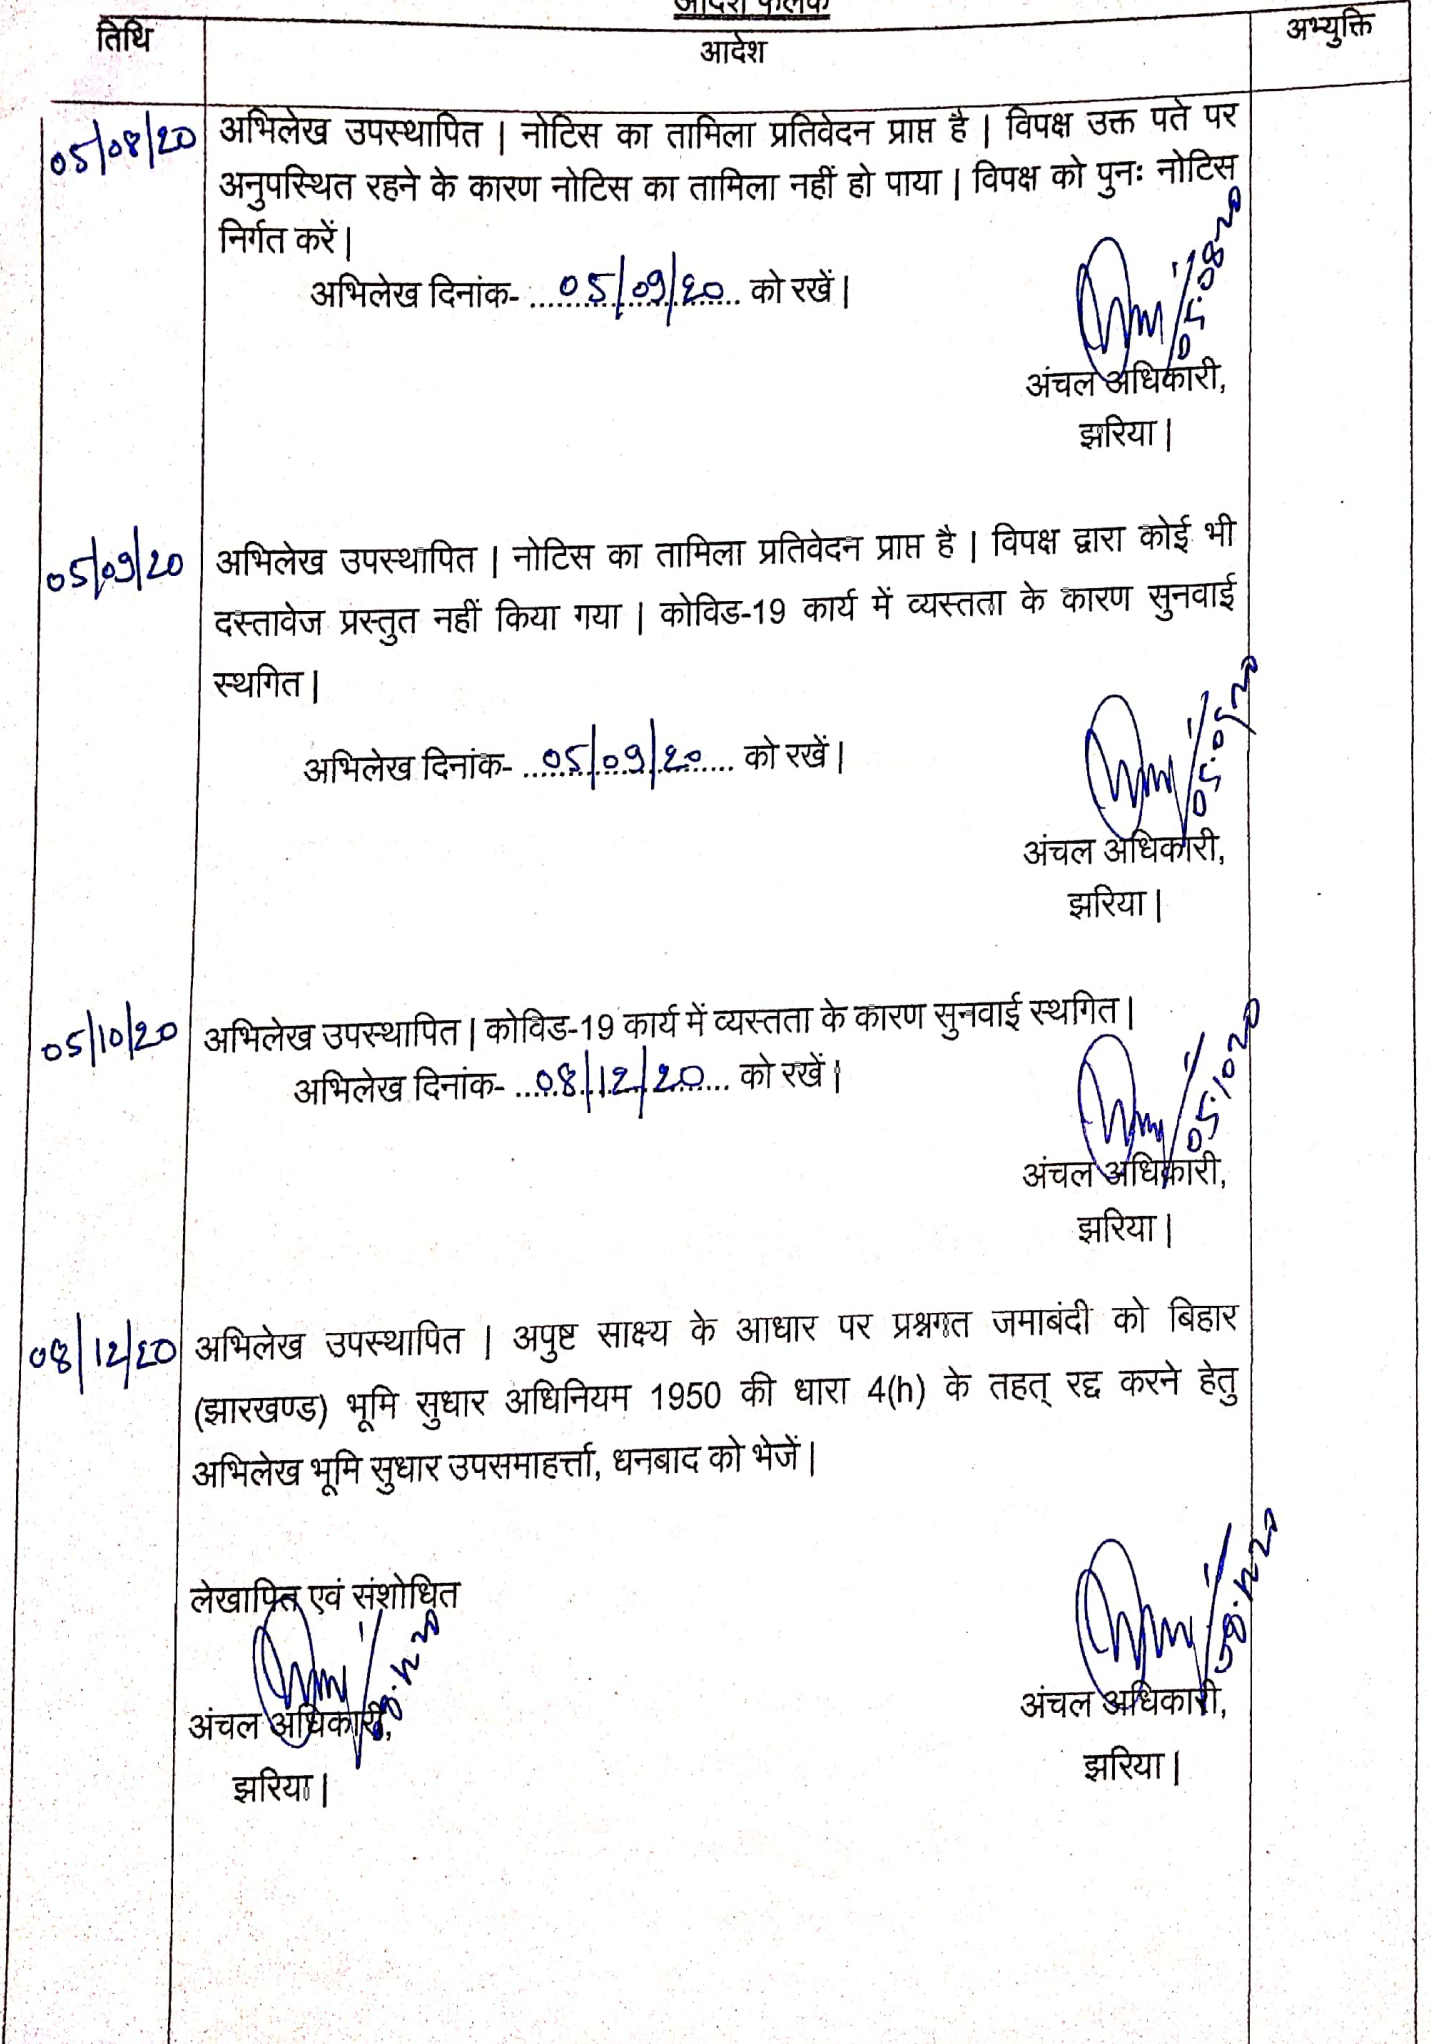 आदेश फलक
तिथि
आदेश
अभ्युक्ति
05/08/20
अभिलेख उपस्थापित | नोटिस का तामिला प्रतिवेदन प्राप्त है | विपक्ष उक्त पते पर
अनुपस्थित रहने के कारण नोटिस का तामिला नहीं हो पाया | विपक्ष को पुनः नोटिस
निर्गत करें |
अभिलेख दिनांक- ...05/09/20... को रखें |
05.08.20
अंचल अधिकारी,
झरिया |
05/09/20
अभिलेख उपस्थापित | नोटिस का तामिला प्रतिवेदन प्राप्त है | विपक्ष द्वारा कोई भी
दस्तावेज प्रस्तुत नहीं किया गया | कोविड-19 कार्य में व्यस्तता के कारण सुनवाई
स्थगित |
अभिलेख दिनांक- ...05/09/20... को रखें |
अंचल अधिकारी,
झरिया |
05/10/20
अभिलेख उपस्थापित | कोविड-19 कार्य में व्यस्तता के कारण सुनवाई स्थगित |
अभिलेख दिनांक- ...08/12/20... को रखें |
05.10.20
अंचल अधिकारी,
झरिया |
08/12/20
अभिलेख उपस्थापित | अपुष्ट साक्ष्य के आधार पर प्रश्नगत जमाबंदी को बिहार
(झारखण्ड) भूमि सुधार अधिनियम 1950 की धारा 4(h) के तहत् रद्द करने हेतु
अभिलेख भूमि सुधार उपसमाहर्त्ता, धनबाद को भेजें |
लेखापित एवं संशोधित
08.12.20
08.12.20
अंचल अधिकारी,
झरिया |
अंचल अधिकारी,
झरिया |